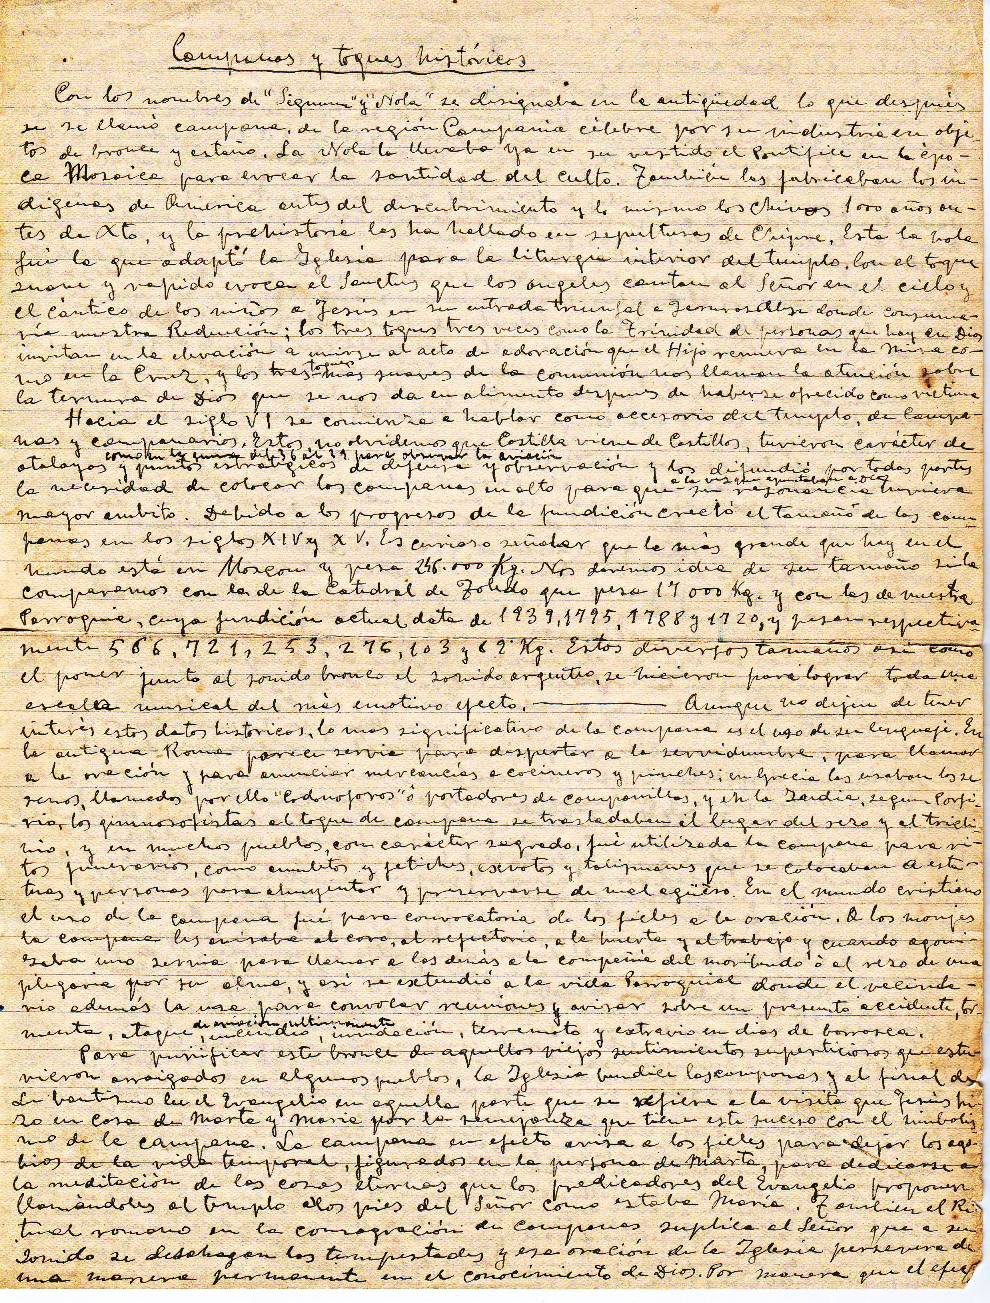 Campanas y toques históricos
Con los nombres de "Signum" y "Nola" se designaba en la antigüedad lo que después
se se llamó campana, de la región Campania célebre por su industria en obje-
tos de bronce y estaño. La Nola la llevaba ya en su vestido el Pontífice en la épo-
ca Mosaica para evocar la santidad del culto. También las fabricaban los in-
dígenas de América antes del descubrimiento y lo mismo los Chinos 1000 años an-
tes de Xto, y la prehistoria las ha hallado en sepulturas de Chipre. Esta la nola
fué la que adaptó la Iglesia para la liturgia interior del templo. Con el toque
suave y rápido evoca el Sanctus que los ángeles cantan al Señor en el cielo y
el cántico de los niños a Jesús en su entrada triunfal a Jerusalen donde consuma-
ría nuestra Redención; los tres toques tres veces como la Trinidad de personas que hay en Dios
invitan en la elevación a unirse al acto de adoración que el Hijo renueva en la misa co-
mo en la Cruz, y los tres toques más suaves de la comunión nos llaman la atención sobre
la ternura de Dios que se nos da en alimento después de haberse ofrecido como víctima
Hacia el siglo VI se comienza a hablar como accesorio del templo, de Campa-
nas y campanarios. Estos, no olvidemos que Castilla viene de Castillos, tuvieron carácter de
como en la guerra del 36 al 39 para observar la aviación
atalayas y puntos estratégicos de defensa y observación y los difundió por todas partes
la necesidad de colocar las campanas en alto para que a la vez que apuntaban a Dios su resonancia tuviera
mayor ámbito. Debido a los progresos de la fundición creció el tamaño de las cam-
panas en los siglos XIV y XV. Es curioso señalar que la más grande que hay en el
mundo está en Moscou y pesa 246.000 Kg. Nos daremos idea de su tamaño si la
comparamos con la de la Catedral de Toledo que pesa 17000 Kg. y con las de nuestra
Parroquia, cuya fundición actual data de 1939, 1795, 1788 y 1720, y pesan respectiva-
mente 566, 721, 253, 276, 103 y 62 Kg. Estos diversos tamaños así como
el poner junto al sonido bronco el sonido argentino, se hicieron para lograr toda una
escala musical del más emotivo efecto. ——— Aunque no dejen de tener
interés estos datos históricos, lo mas significativo de la campana es el uso de su lenguaje. En
la antigua Roma parece servía para despertar a la servidumbre, para llamar
a la oración y para anunciar mercancías a cocineros y pinches; en Grecia las usaban los se
renos, llamados por ello "Codonoforos" ó portadores de campanillas, y en la India, segun Porfi-
rio, los gimnosofistas al toque de campana se trasladaban al lugar del rezo y al tricli-
nio, y en muchos pueblos, con carácter sagrado, fué utilizada la campana para ri-
tos funerarios, como amuletos y fetiches, exvotos y talismanes que se colocaban a esta-
tuas y personas para ahuyentar y preservarse de mal agüero. En el mundo cristiano
el uso de la campana fué para convocatoria de los fieles a la oración. A los monjes
la campana les avisaba al coro, al refectorio, a la huerta y al trabajo y cuando agoni-
zaba uno servía para llamar a los demás a la compañía del moribundo ó al rezo de una
plegaria por su alma, y así se extendió a la vida Parroquial donde el vecinda-
rio además la usa para convocar reuniones y avisar sobre un presunto accidente, tor-
menta, ataque de aviación ultimamente, incendio, inundación, terremoto y extravio en días de borrasca.
Para purificar este bronce de aquellos viejos sentimientos superticiosos que estu-
vieron arraigados en algunos pueblos, la Iglesia bendice las campanas y al final de
su bautismo lee el Evangelio en aquella parte que se refiere a la visita que Jesús hi-
zo en casa de Marta y Maria por la semejanza que tiene este suceso con el simbolis
mo de la campana. La campana en efecto avisa a los fieles para dejar los ago-
bios de la vida temporal, figurados en la persona de Marta, para dedicarse a
la meditación de las cosas eternas que los predicadores del Evangelio proponen
llamándoles al templo a los pies del Señor como estaba Maria. Tambien el Ri
tual romano en la consagración de campanas suplica al Señor que a su
sonido se deshagan las tempestades y esa oración de la Iglesia persevera de
una manera permanente en el conocimiento de Dios. Por manera que el efec